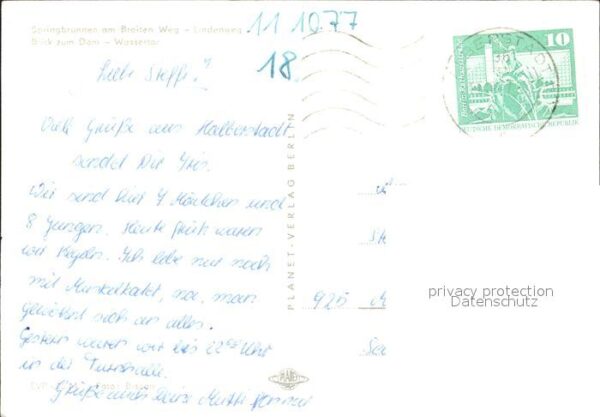 Springbrunnen am Breiten Weg - Lindenweg
Blick zum Dom - Wassertor
11 10 77
18.
Liebe Steffi!
Viele Grüße aus Halberstadt
sendet Dir Iris.
Wir sind hier 7 Mädchen und
8 Jungen. Heute früh waren
wir Kegeln. Ich lebe nur noch
mit Muskelkater, na, man
gewöhnt sich an alles.
Gestern waren wir bis 22 Uhr
in der Turnhalle.
Grüße auch Deine Mutti
EVP
Foto:
PLANET-VERLAG BERLIN
PLANET
10
DEUTSCHE DEMOKRATISCHE REPUBLIK
925
privacy protection
Datenschutz